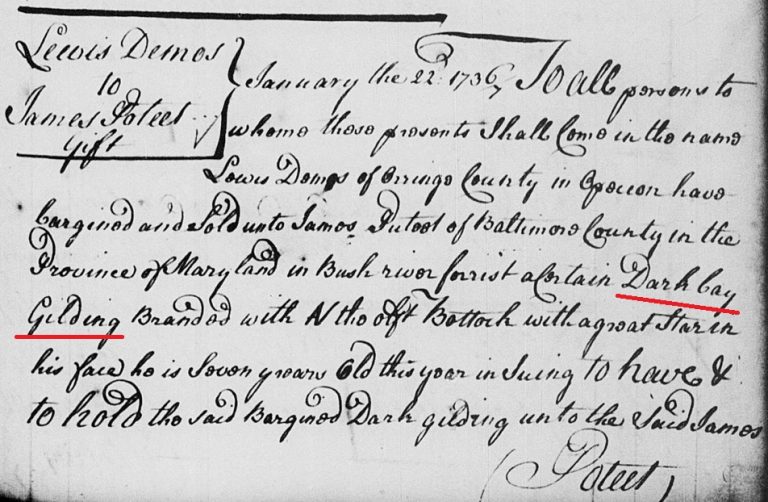 Lewis Demos
to
James Poteet
Gift
January the 22d 1736/7 To all persons to
whome these presents Shall Come in the name
Lewis Demos of Orringe County in Opecon have
bargined and Sold unto James Puteet of Baltimore County in the
Province of Maryland in Bush river forrist a Certain Dark bay
Gilding Branded with N the Buttock with a great Star in
his face he is Seven years Old this year in Suing to have &
to hold the said Bargined Dark gilding unto the Said James
Poteet